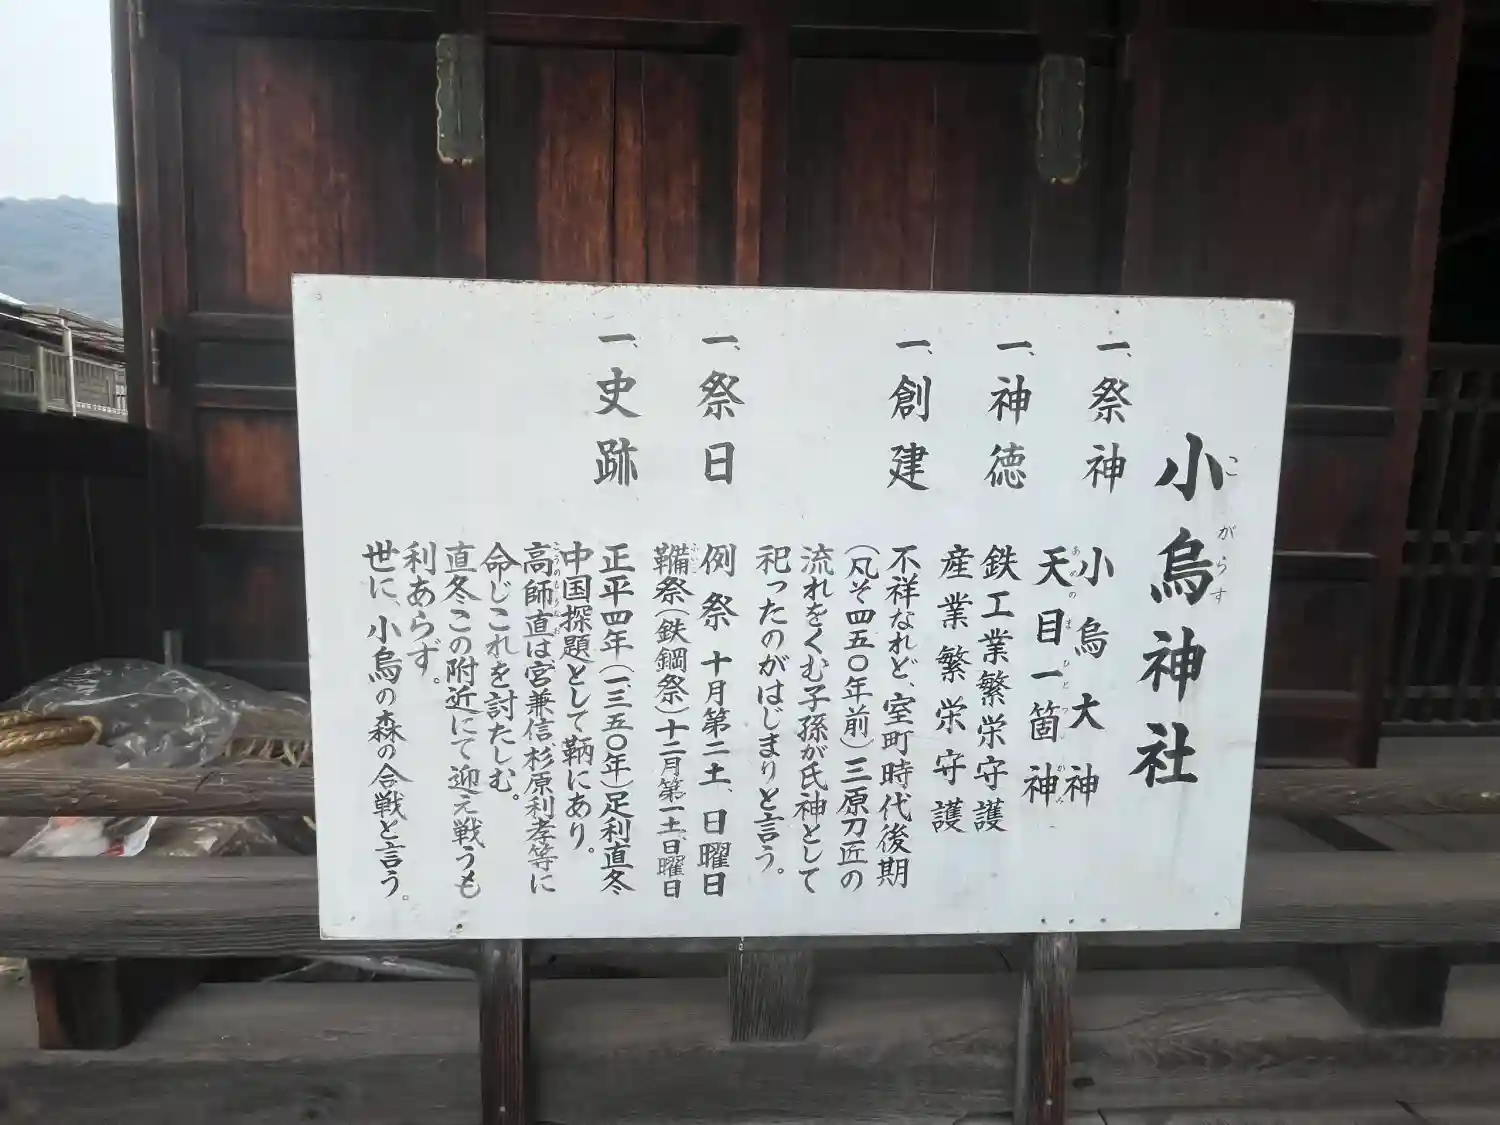 小烏神社
こがらす
一、祭神 小烏大神
天目一箇神
あめのまひとつかみ
一、神徳 鉄工業繁栄守護
産業繁栄守護
一、創建 不祥なれど、室町時代後期
(凡そ四五〇年前)三原刀匠の
流れをくむ子孫が氏神として
祀ったのがはじまりと言う。
一、祭日 例祭 十月第二土、日曜日
鞴祭(鉄鋼祭)十二月第一土、日曜日
一、史跡 正平四年(一三五〇年)足利直冬
中国探題として鞆にあり。
高師直は宮兼信、杉原利孝等に
こうのもろなお
命じこれを討たしむ。
直冬この附近にて迎え戦うも
利あらず。
世に、小烏の森の合戦と言う。